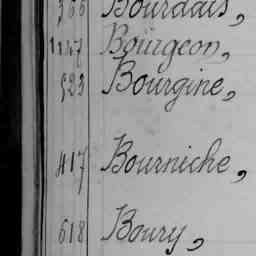 366 Bourdais,
1147 Bourgeon,
523 Bourgine,
417 Bourniche,
618 Boury,